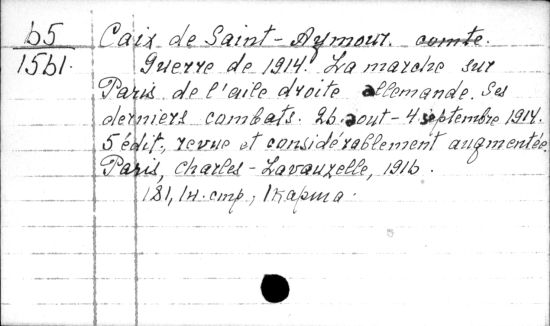 b5
1561.
Caix de Saint-Aymour. comte.
Guerre de 1914. La marche sur
Paris de l'aile droite allemande. Ses
derniers combats. 26 aout - 4 septembre 1914.
5 édit., revue et considérablement augmentée.
Paris, Charles-Lavauzelle, 1916.
181, 1н. стр., 1 карта.